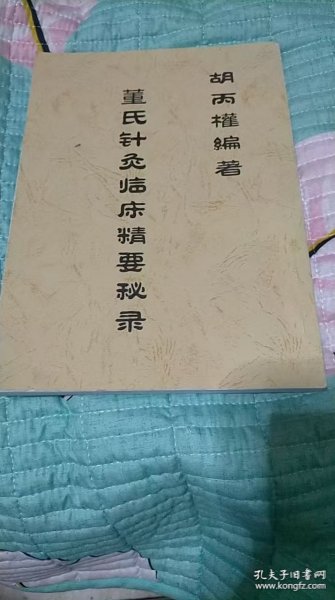 胡丙權編著
董氏针灸临床精要秘录
孔夫子旧书网
www.kongfz.com